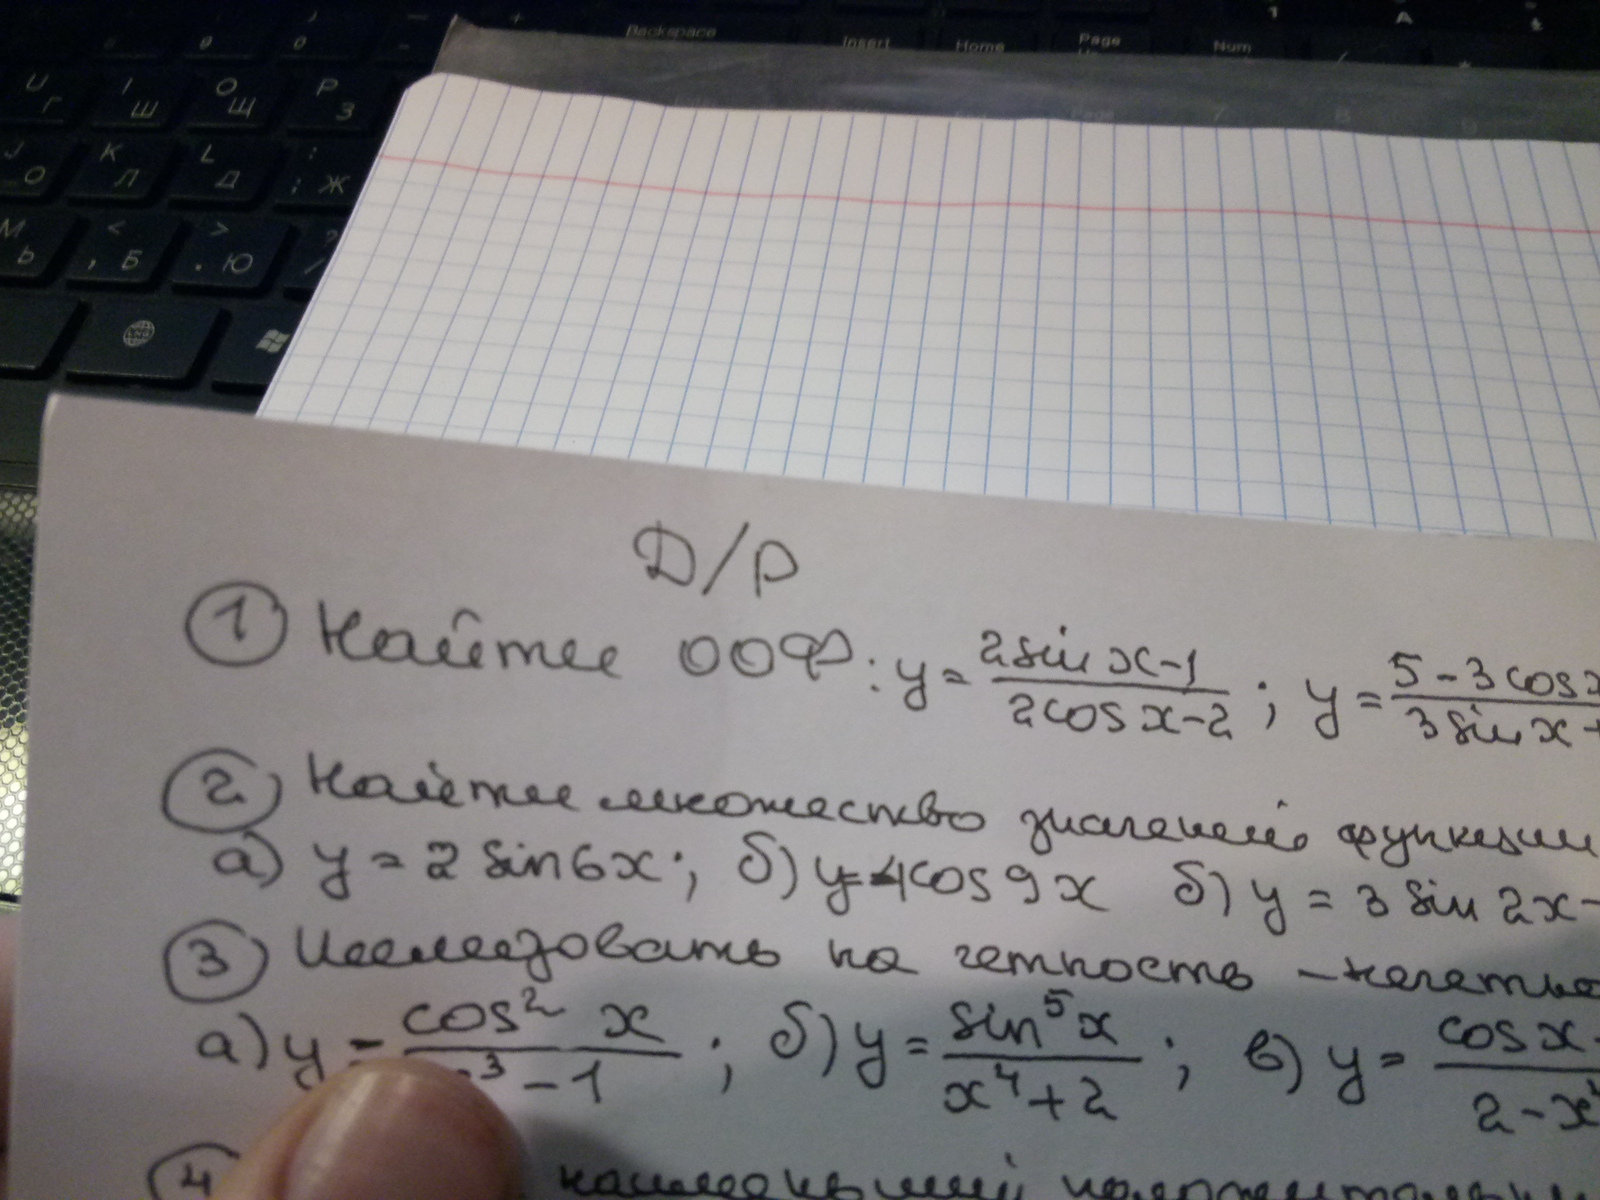 Backspace
Insert
Home
Page
Num
U Г
I Ш
O Щ
P З
J О
K Л
L Д
: ; Ж
М Ь
< , Б
> . Ю
Д/Р
1 Найти ООФ: y = (2 sin x - 1)/(2 cos x - 2); y = (5 - 3 cos x)/(3 sin x +
2 Найти множество значений функции
а) y = 2 sin 6x; б) y = 4 cos 9x б) y = 3 sin 2x -
3 Исследовать на четность - нечетно
а) y = cos² x / ³ - 1; б) y = sin⁵ x / (x⁴ + 2); в) y = cos x - / 2 - x⁴
4